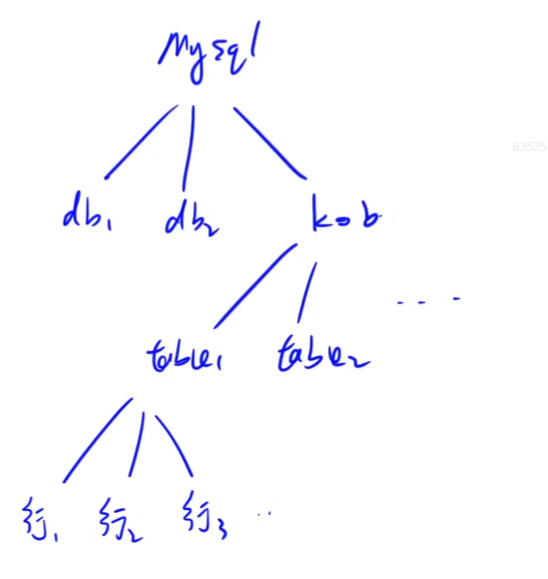 Mysql
63525
db1 db2 kob
- - -
table1 table2
行1 行2 行3 ..